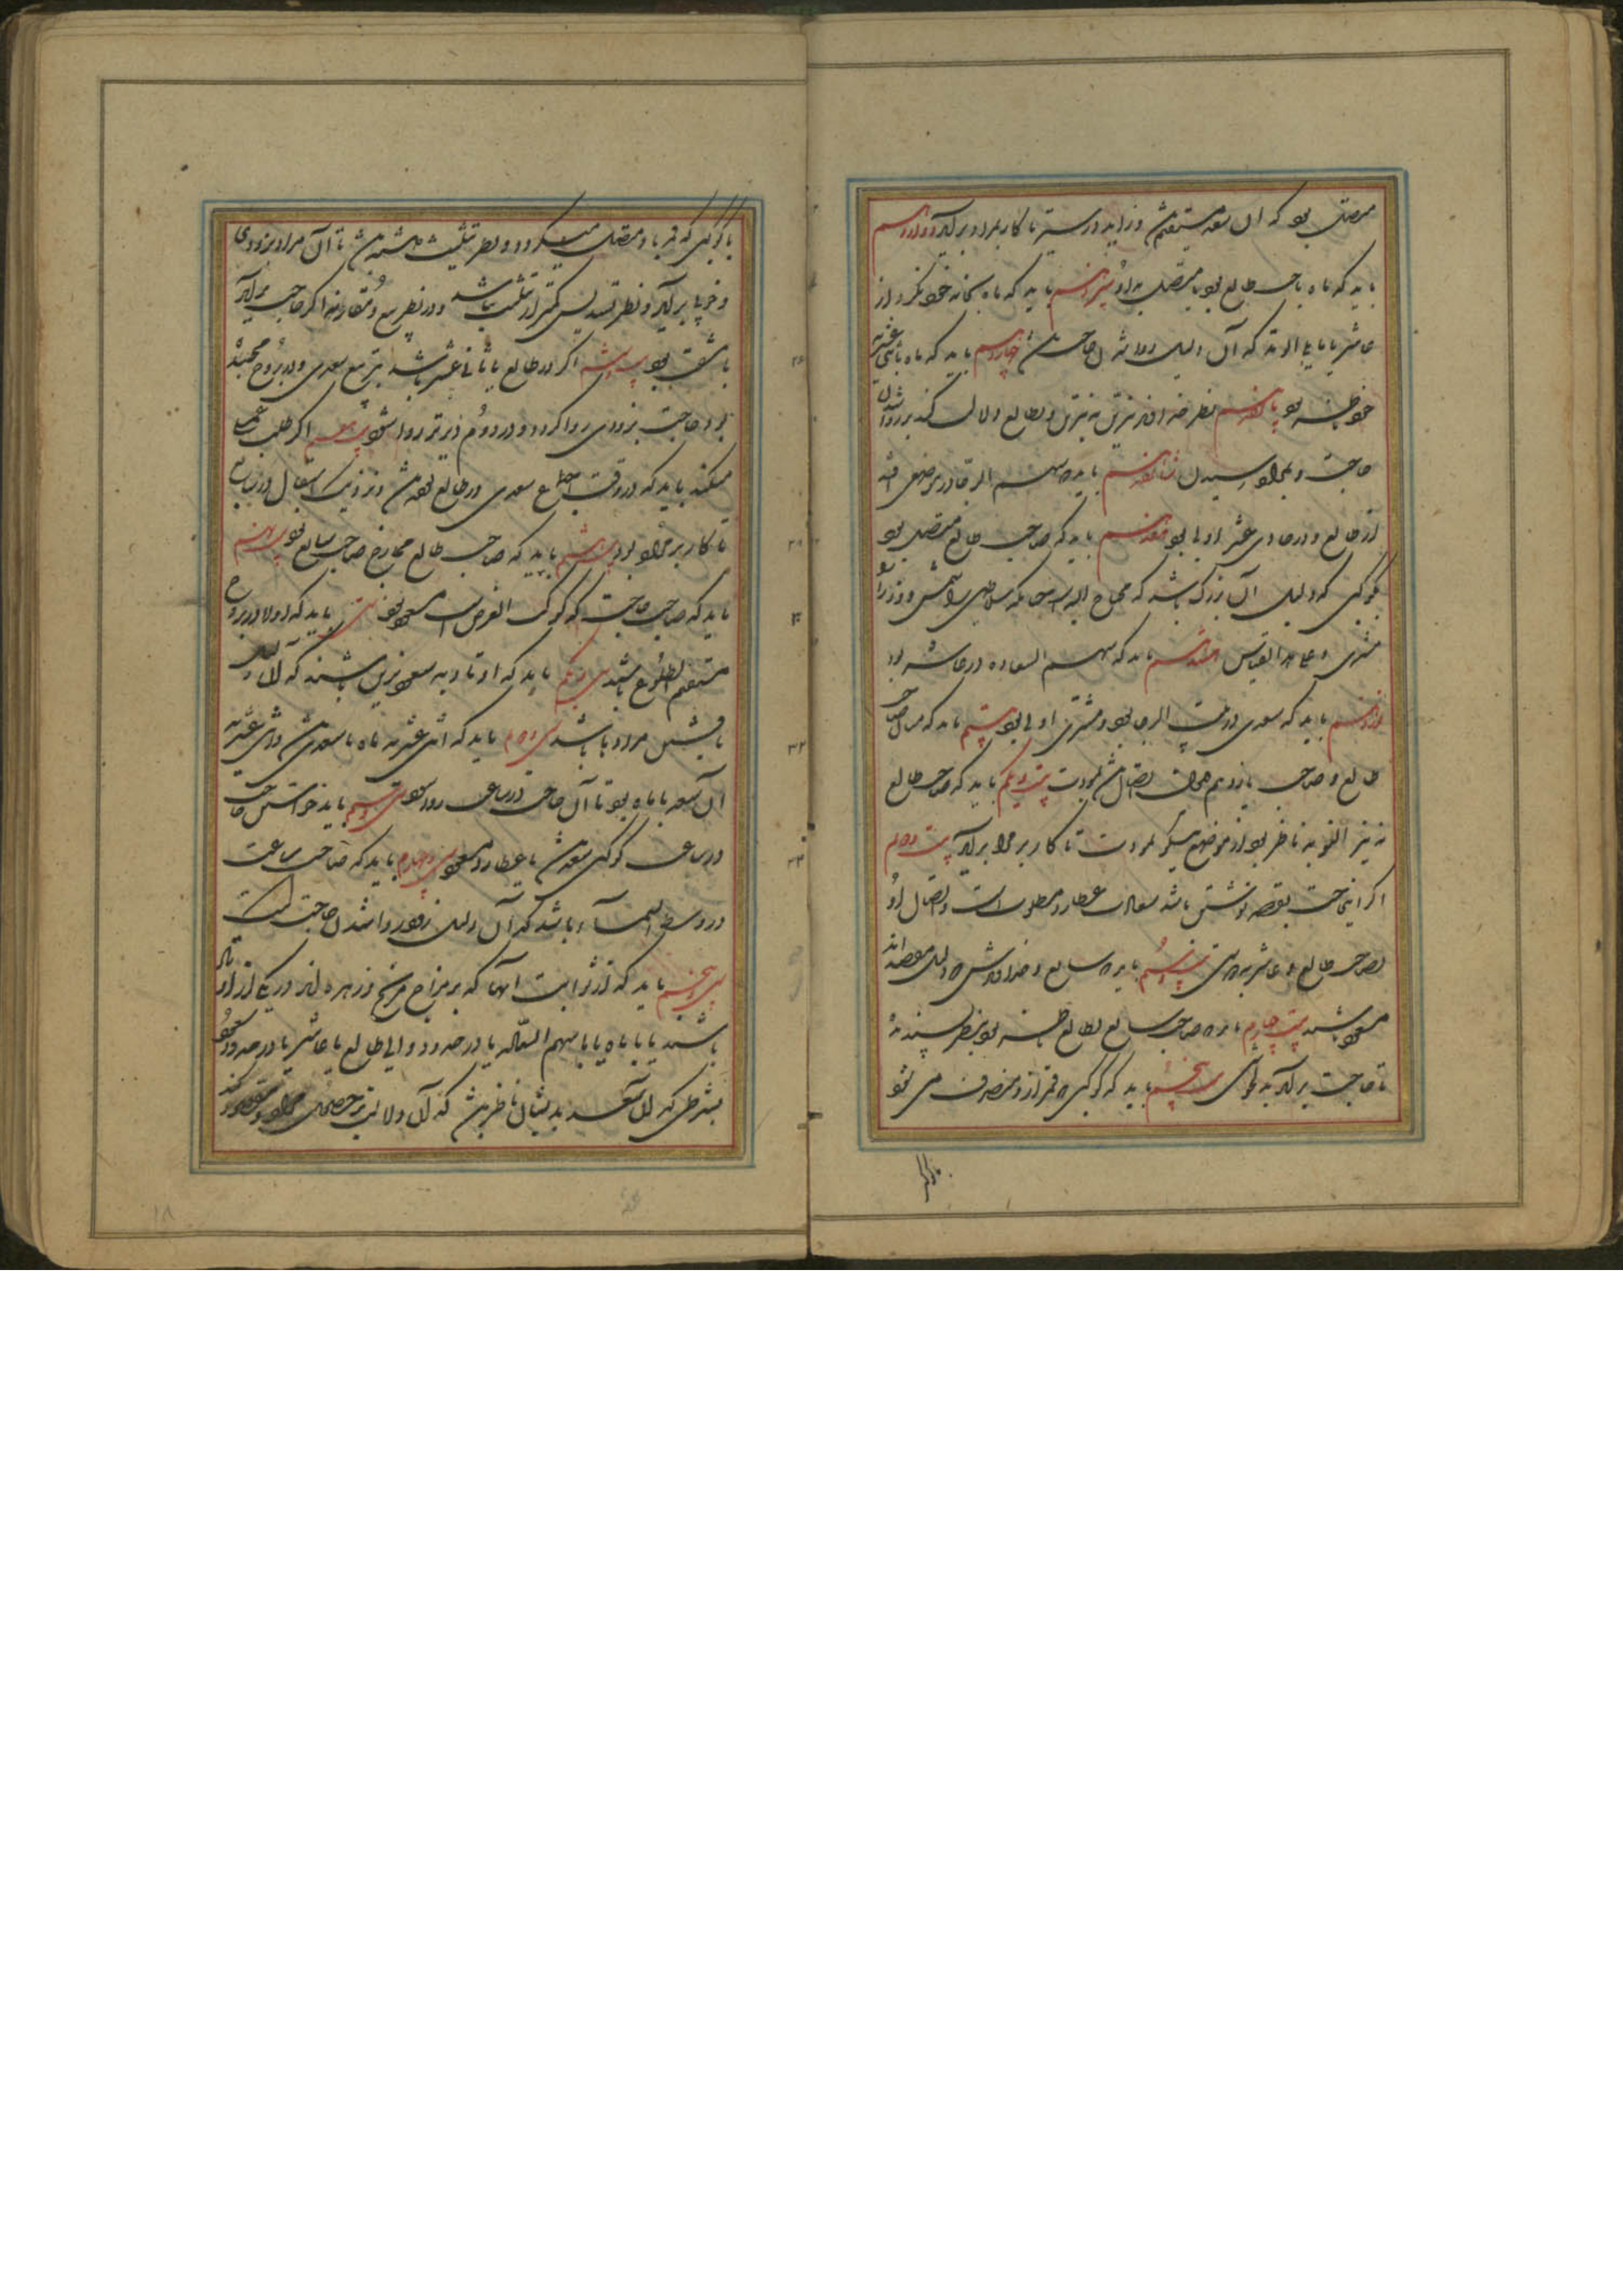 متصل بود که آن سعد مستقیم باشد و زاید در سیر تا کار بمراد برآید دوازدهم
باید که ماه با صاحب طالع بود یا متصل بدو سیزدهم باید که ماه بخانه خود نگرد و از
عاشر یا مایل الوتد که آن دلیل روا شدن حاجت باشد چهاردهم باید که ماه باثنی عشریه
خود بود پانزدهم نظر خداوند نیرین به نیرین و بطالع دلالت کند بر روا شدن
حاجت و بمراد رسیدن شانزدهم باید که سهم الرجا در موضعی افتد
از طالع و در حادی عشر اولی بود هفدهم باید که صاحب طالع متصل بود
بکوکبی که دلیل آن بزرگ باشد که محتاج الیه است چنانکه سلاطین را شمس و وزرا را
مشتری و علی هذا القیاس هشتدهم باید که سهم السعاده در عاشر بود
نوزدهم باید که سعدی در بیت الرجا بود و مشتری اولی بود بیستم باید که میان صاحب
طالع و صاحب یازدهم همچنان اتصال باشد بمودت بیست و یکم باید که صاحب طالع
نیز ناظر بود از موضع نیکو بمودت تا کار بر مراد برآید بیست و دوم
اگر این حاجت بقصه نوشتن باشد سعادت عطارد مطلوب است و اتصال او
بصاحب طالع و عاشر بدوستی بیست و سیم باید که سابع و خداوندش که دلیل مقصد اند
مسعود باشند بیست و چهارم باید که صاحب سابع بطالع بود بنظر پسندیده
تا حاجت برآید به نیکوئی بیست و پنجم باید که کوکبی که قمر ازو منصرف می شود
با کوکبی که قمر باو متصل میگردد و نظر تثلیث داشته باشد تا آن مراد بزودی
و خوبی برآید و نظر تسدیس کمتر از تثلیث باشد و در نظر تربیع و مقارنه اگر حاجت برآید
با مشقت بود بیست و ششم اگر در طالع یا ثانی عشر باشد بتربیع سعدی و در بروج مجسد
بود حاجت بزودی روا گردد و در دوم دیرتر روا شود بیست و هفتم اگر طلب عمل
میکند باید که در وقت اجتماع سعدی در طالع بوده باشد و نزدیک استقبال در سابع
تا کار بر مراد بود بیست و هشتم باید که صاحب طالع ممازج صاحب سابع بود بیست و نهم
باید که صاحب حاجت که کوکب الغرض است مسعود بود سی‌ام باید که اوتاد در بروج
مستقیم الطلوع باشد سی و یکم باید که اوتاد به سعود مزین باشند که آن دلیل
یافتن مرادها باشد سی و دوم باید که اثنی عشریه ماه با سعدی باشد و اثنی عشریه
آن سعد با ماه بود تا آن حاجت در ساعت روا شود سی و سیم باید خواستن حاجت
در ساعت کوکبی سعد باشد یا عطارد مسعود سی و چهارم باید که صاحب ساعت
در وسط السماء باشد که آن دلیل زود روا شدن حاجت است
سی و پنجم باید که از ثوابت آنها که بر مزاج مریخ و زهره اند در یکی از اوتاد
باشند یا با ماه یا با سهم السعاده یا در حدود والی طالع یا عاشر یا در حدود
بشرطی که آن سعد بدیشان ناظر باشد که آن دلالت بر حصول مراد و مقصود کند